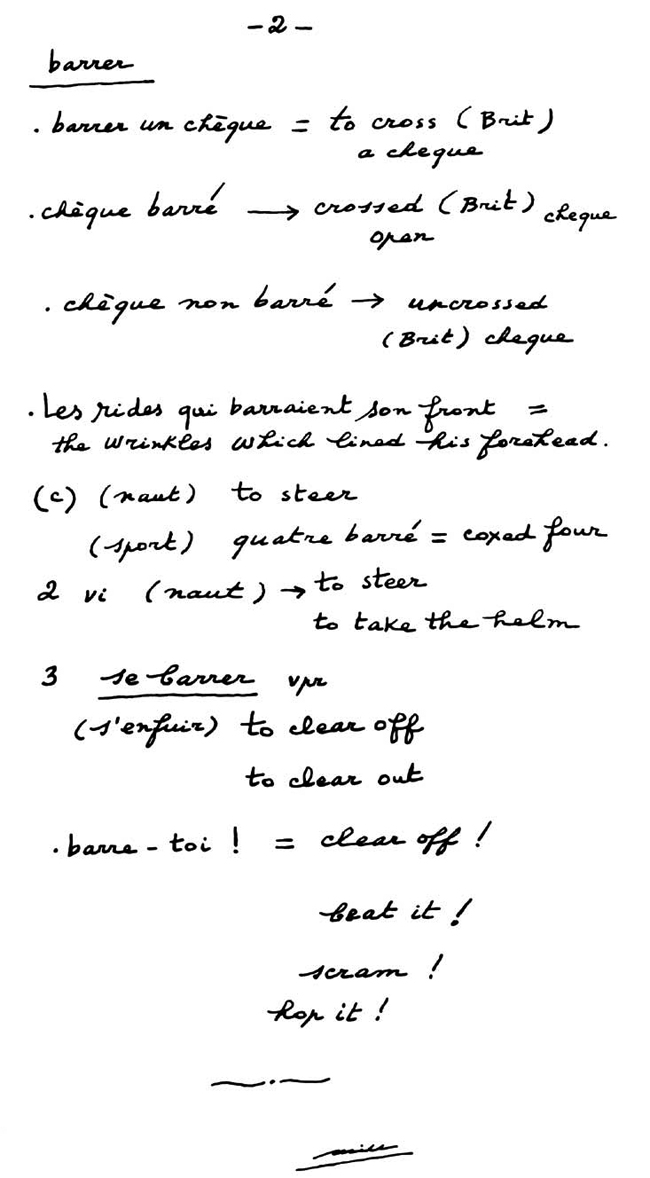 -2-
barrer
. barrer un chèque = to cross (Brit)
a cheque
. chèque barré → crossed (Brit) cheque
open
. chèque non barré → uncrossed
(Brit) cheque
. Les rides qui barraient son front =
the wrinkles which lined his forehead.
(c) (naut) to steer
(sport) quatre barré = coxed four
2 vi (naut) → to steer
to take the helm
3 se barrer vpr
(s'enfuir) to clear off
to clear out
. barre-toi ! = clear off !
beat it !
scram !
hop it !